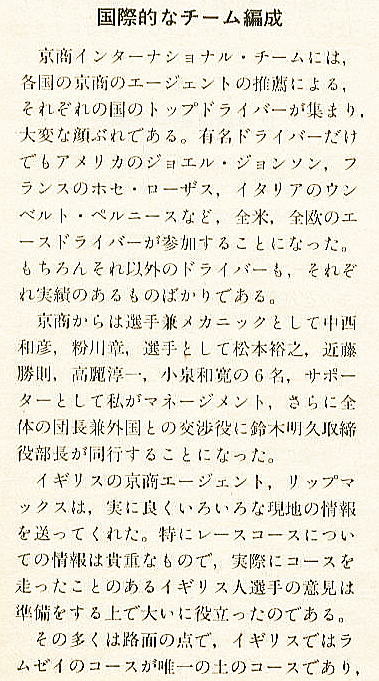 国際的なチーム編成
京商インターナショナル・チームには，
各国の京商のエージェントの推薦による，
それぞれの国のトップドライバーが集まり，
大変な顔ぶれである。有名ドライバーだけ
でもアメリカのジョエル・ジョンソン，フ
ランスのホセ・ローザス，イタリアのウン
ベルト・ペルニースなど，全米，全欧のエ
ースドライバーが参加することになった。
もちろんそれ以外のドライバーも，それぞ
れ実績のあるものばかりである。
京商からは選手兼メカニックとして中西
和彦，粉川章，選手として松本裕之，近藤
勝則，高麗淳一，小泉和寛の6名，サポー
ターとして私がマネージメント，さらに全
体の団長兼外国との交渉役に鈴木明久取締
役部長が同行することになった。
イギリスの京商エージェント，リップマ
ックスは，実に良くいろいろな現地の情報
を送ってくれた。特にレースコースについ
ての情報は貴重なもので，実際にコースを
走ったことのあるイギリス人選手の意見は
準備をする上で大いに役立ったのである。
その多くは路面の点で，イギリスではラ
ムゼイのコースが唯一の土のコースであり，